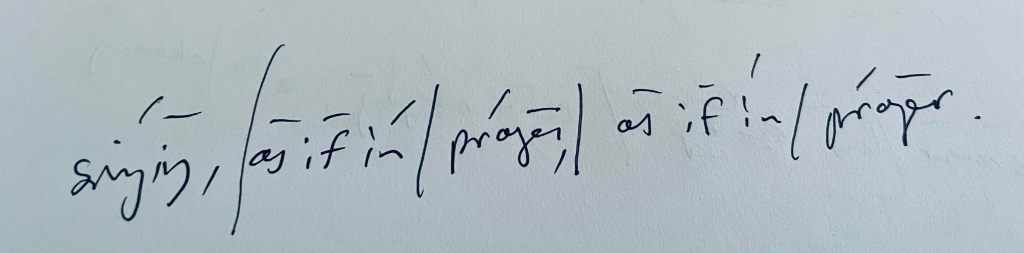 singing, / as if in / prayer, / as if in / prayer.